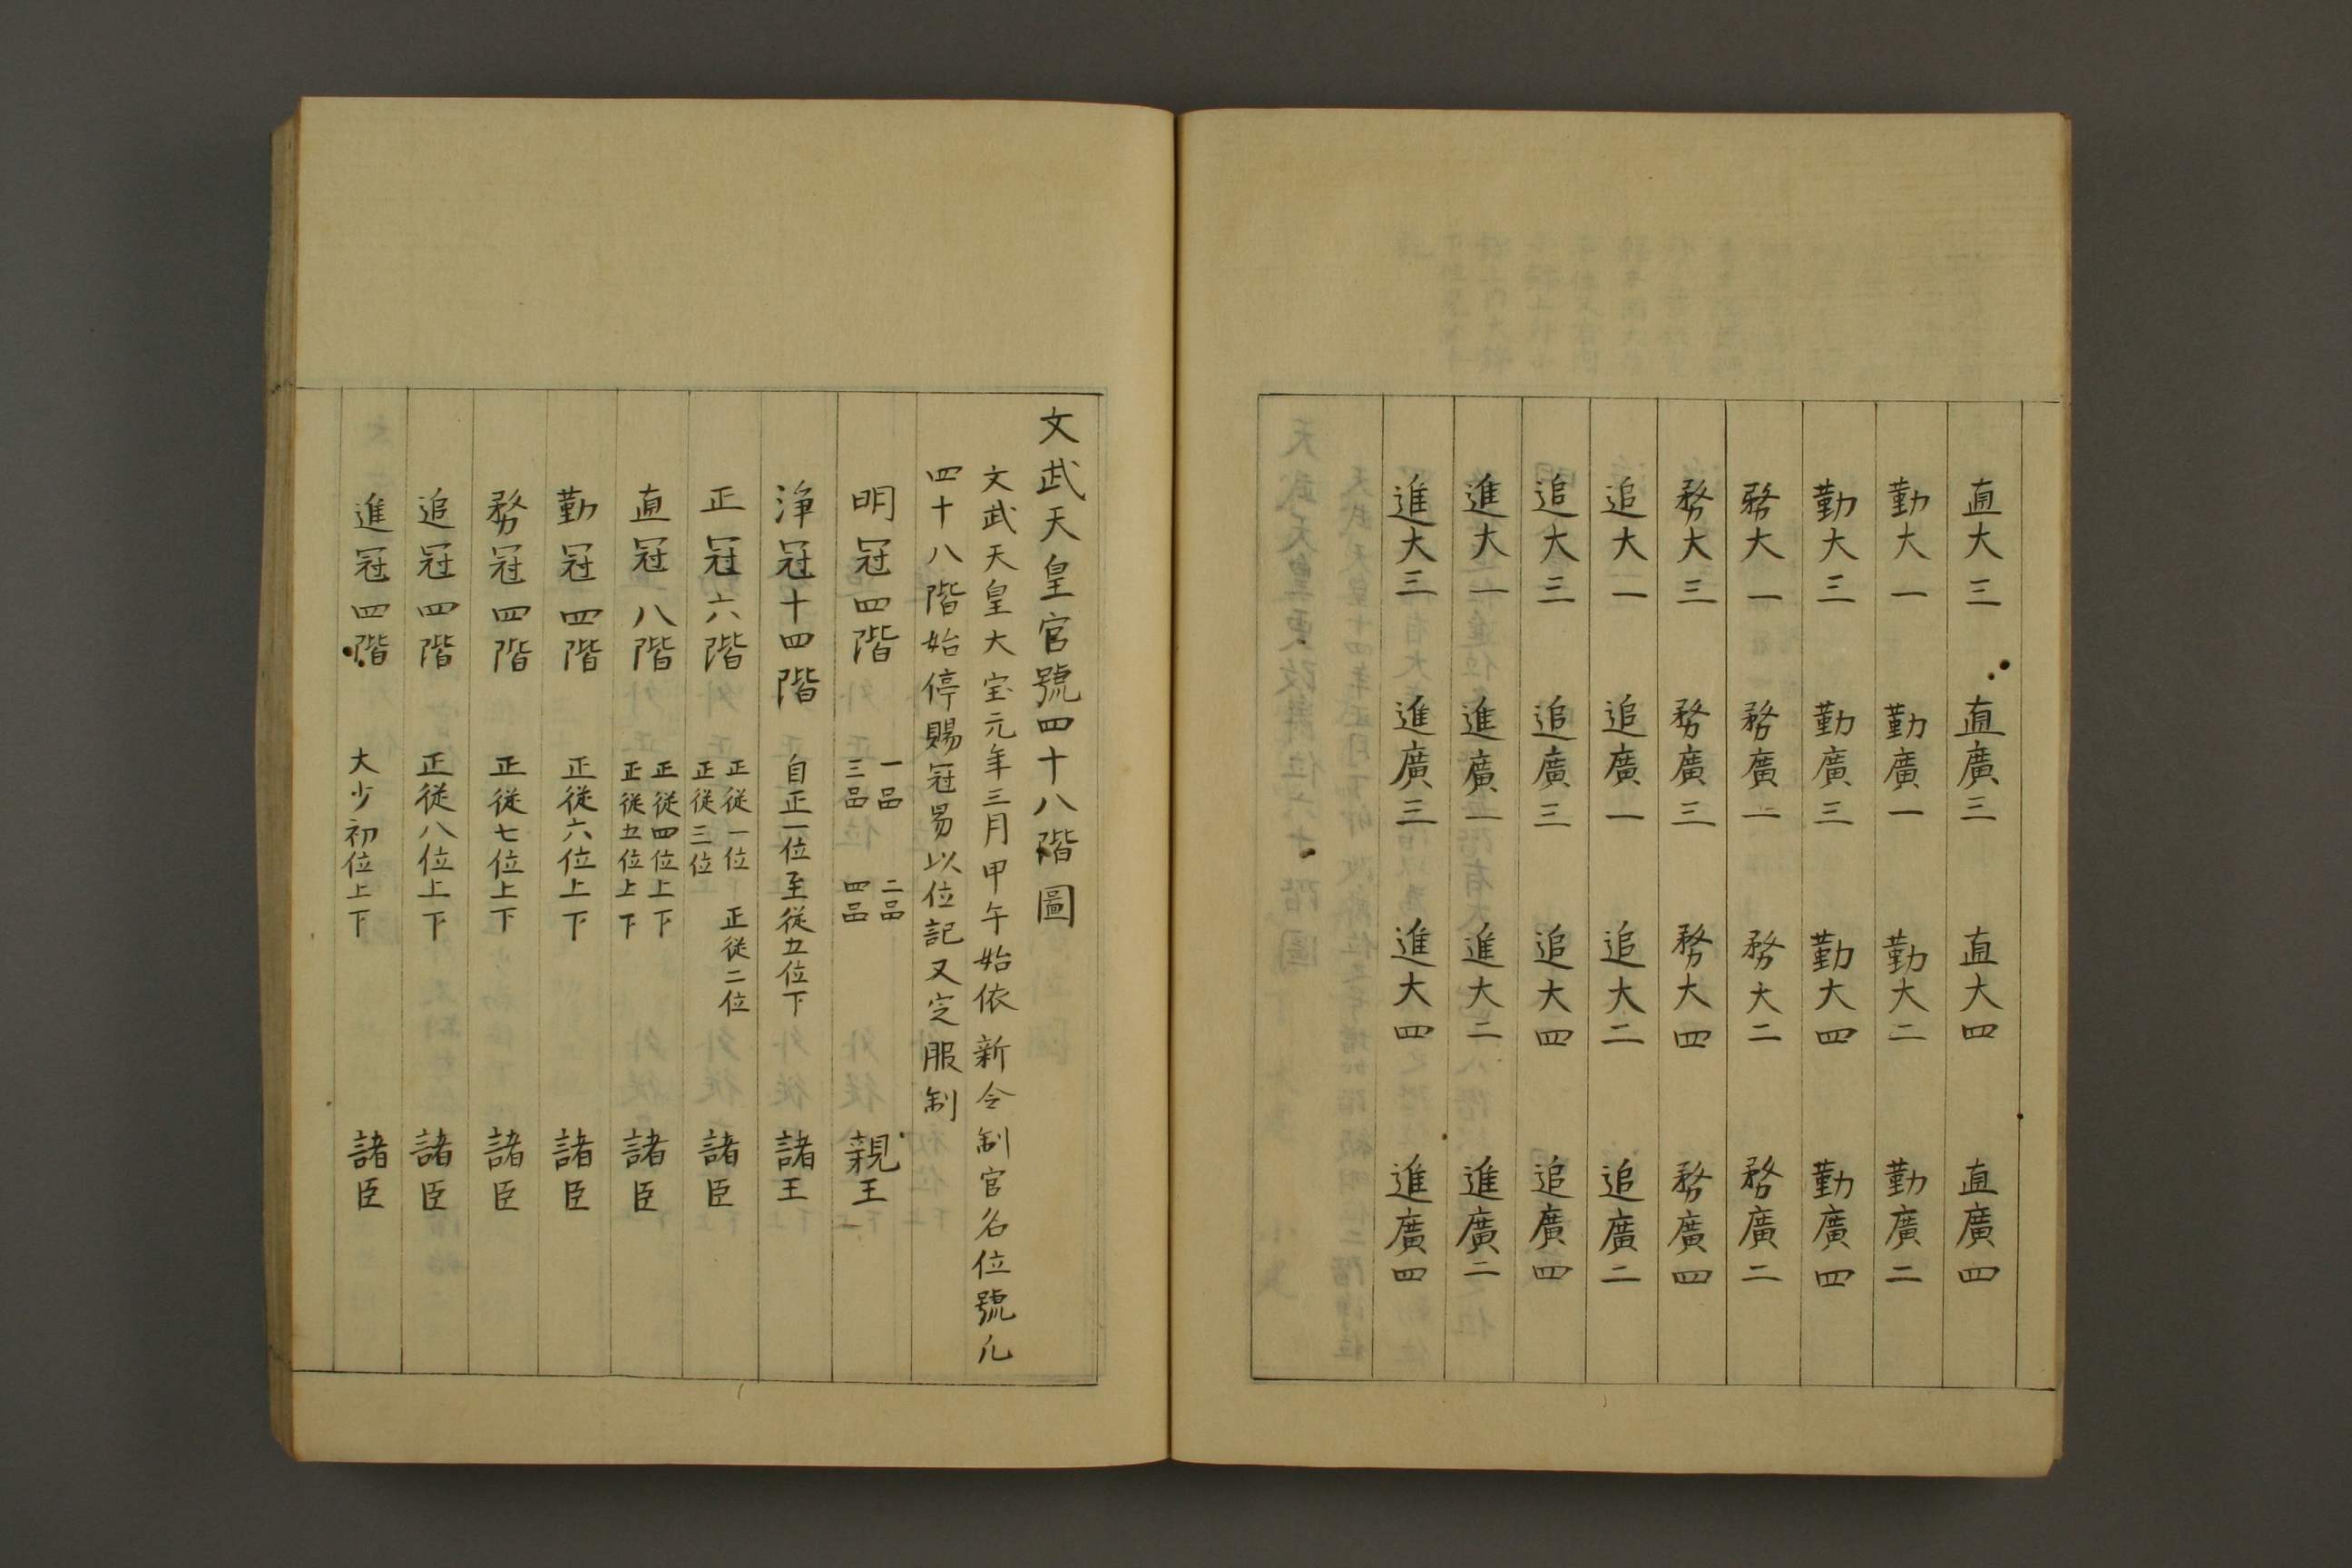 直大三 直廣三 直大四 直廣四
勤大一 勤廣一 勤大二 勤廣二
勤大三 勤廣三 勤大四 勤廣四
務大一 務廣一 務大二 務廣二
務大三 務廣三 務大四 務廣四
追大一 追廣一 追大二 追廣二
追大三 追廣三 追大四 追廣四
進大一 進廣一 進大二 進廣二
進大三 進廣三 進大四 進廣四
文武天皇官號四十八階圖
文武天皇大宝元年三月甲午始依新令制官名位號凡
四十八階始停賜冠易以位記又定服制
明冠四階 一品 二品 三品 四品 親王
浄冠十四階 自正一位至従五位下 諸王
正冠六階 正従一位 正従二位 正従三位 諸臣
直冠八階 正従四位上下 正従五位上下 諸臣
勤冠四階 正従六位上下 諸臣
務冠四階 正従七位上下 諸臣
追冠四階 正従八位上下 諸臣
進冠四階 大少初位上下 諸臣